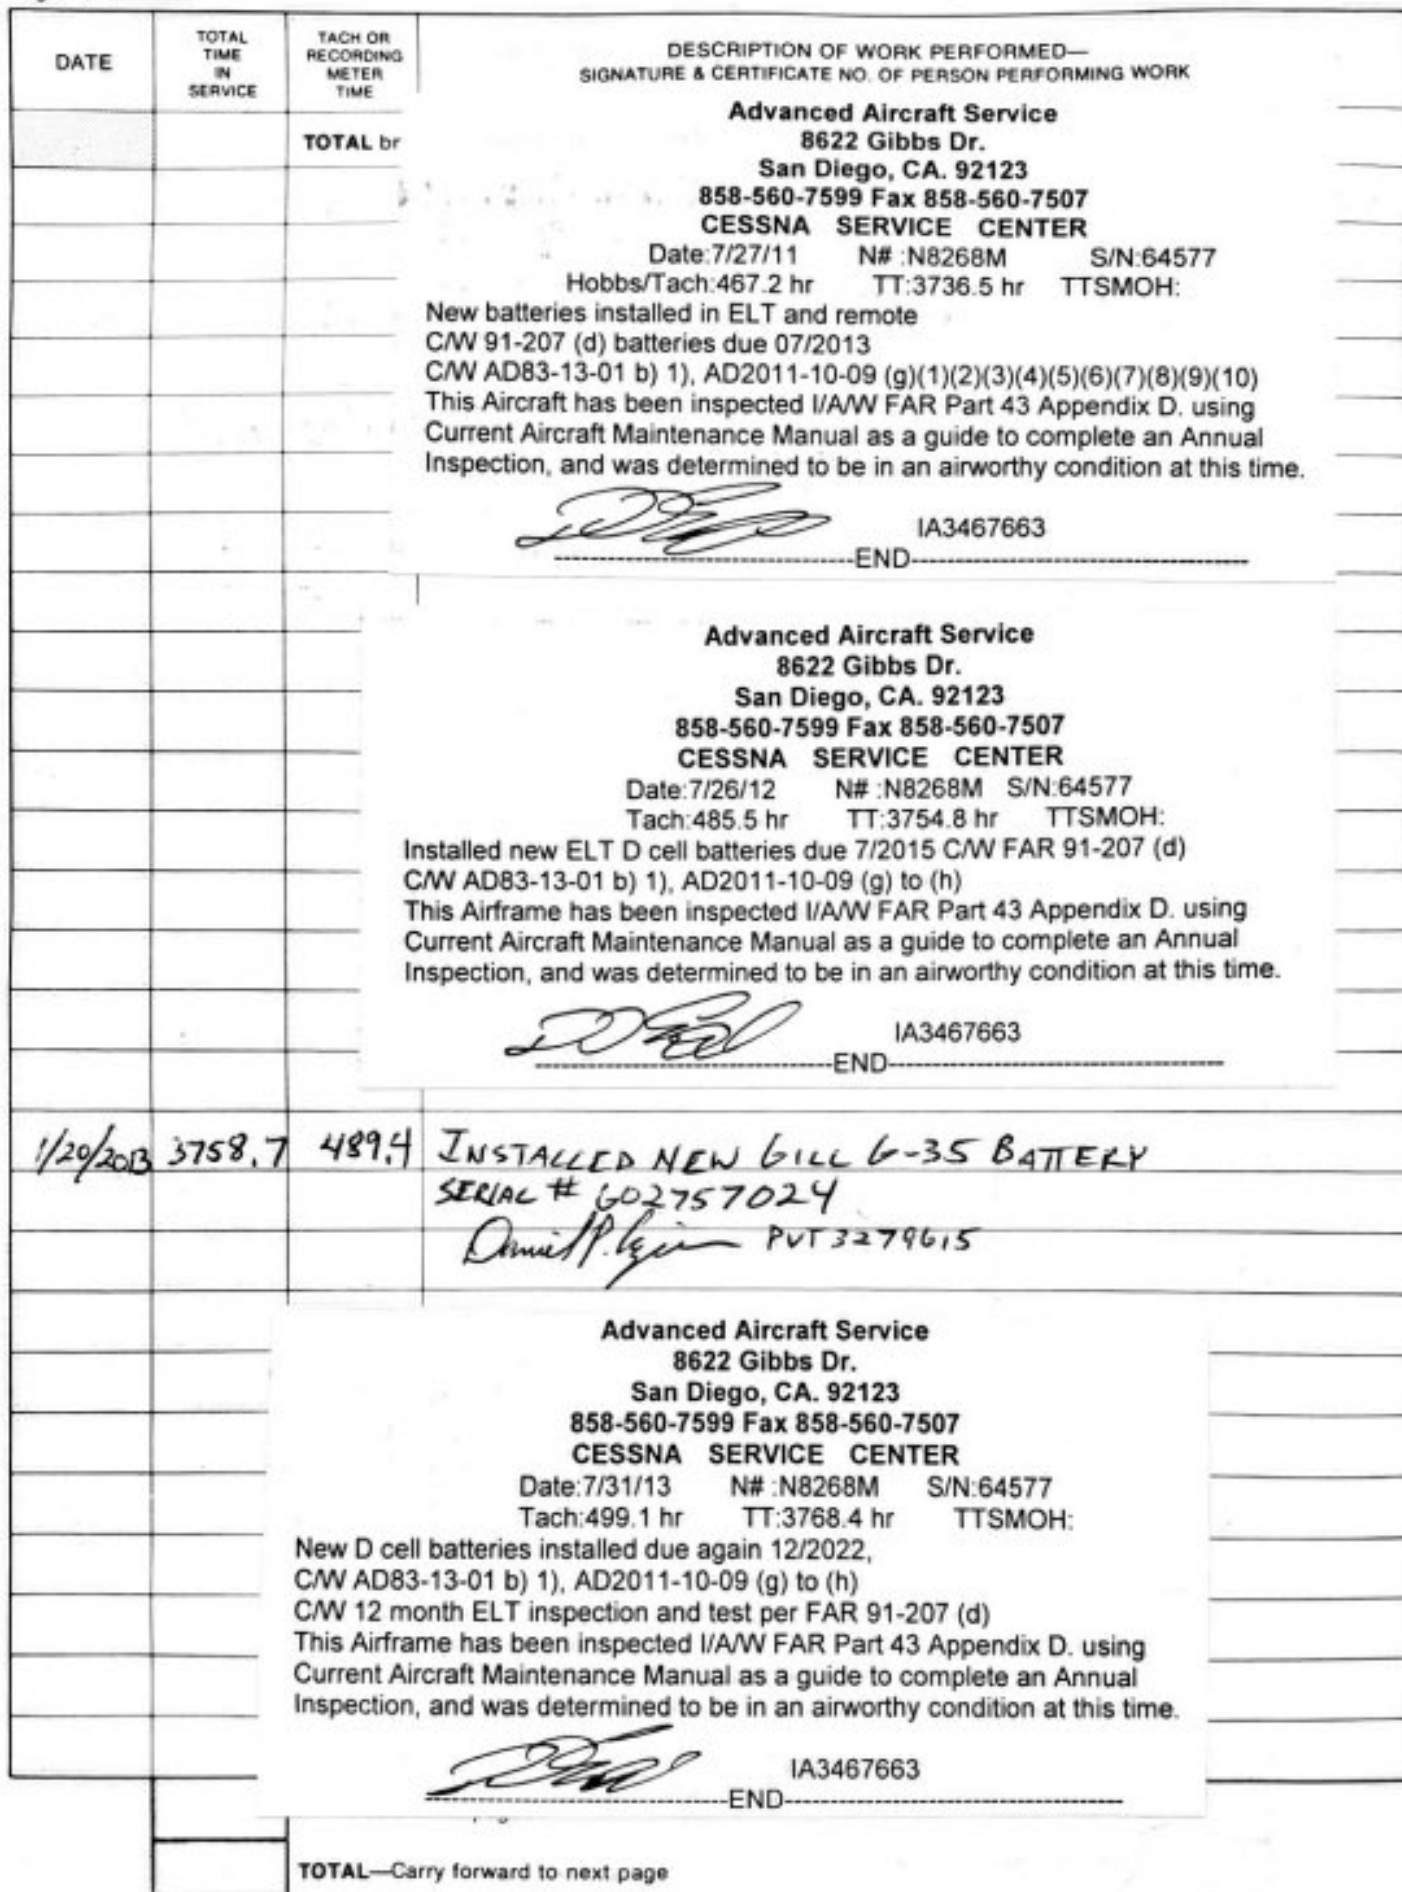 DATE
TOTAL
TIME
IN
SERVICE
TACH OR
RECORDING
METER
TIME
DESCRIPTION OF WORK PERFORMED—
SIGNATURE & CERTIFICATE NO. OF PERSON PERFORMING WORK
TOTAL br
Advanced Aircraft Service
8622 Gibbs Dr.
San Diego, CA. 92123
858-560-7599 Fax 858-560-7507
CESSNA SERVICE CENTER
Date:7/27/11 N# :N8268M S/N:64577
Hobbs/Tach:467.2 hr TT:3736.5 hr TTSMOH:
New batteries installed in ELT and remote
C/W 91-207 (d) batteries due 07/2013
C/W AD83-13-01 b) 1), AD2011-10-09 (g)(1)(2)(3)(4)(5)(6)(7)(8)(9)(10)
This Aircraft has been inspected I/A/W FAR Part 43 Appendix D. using
Current Aircraft Maintenance Manual as a guide to complete an Annual
Inspection, and was determined to be in an airworthy condition at this time.
IA3467663
END
Advanced Aircraft Service
8622 Gibbs Dr.
San Diego, CA. 92123
858-560-7599 Fax 858-560-7507
CESSNA SERVICE CENTER
Date:7/26/12 N# :N8268M S/N:64577
Tach:485.5 hr TT:3754.8 hr TTSMOH:
Installed new ELT D cell batteries due 7/2015 C/W FAR 91-207 (d)
C/W AD83-13-01 b) 1), AD2011-10-09 (g) to (h)
This Airframe has been inspected I/A/W FAR Part 43 Appendix D. using
Current Aircraft Maintenance Manual as a guide to complete an Annual
Inspection, and was determined to be in an airworthy condition at this time.
IA3467663
END
1/20/2013 3758.7 489.4 INSTALLED NEW GILL G-35 BATTERY
SERIAL # G02757024
Daniel P. PVT 3279615
Advanced Aircraft Service
8622 Gibbs Dr.
San Diego, CA. 92123
858-560-7599 Fax 858-560-7507
CESSNA SERVICE CENTER
Date:7/31/13 N# :N8268M S/N:64577
Tach:499.1 hr TT:3768.4 hr TTSMOH:
New D cell batteries installed due again 12/2022,
C/W AD83-13-01 b) 1), AD2011-10-09 (g) to (h)
C/W 12 month ELT inspection and test per FAR 91-207 (d)
This Airframe has been inspected I/A/W FAR Part 43 Appendix D. using
Current Aircraft Maintenance Manual as a guide to complete an Annual
Inspection, and was determined to be in an airworthy condition at this time.
IA3467663
END
TOTAL—Carry forward to next page